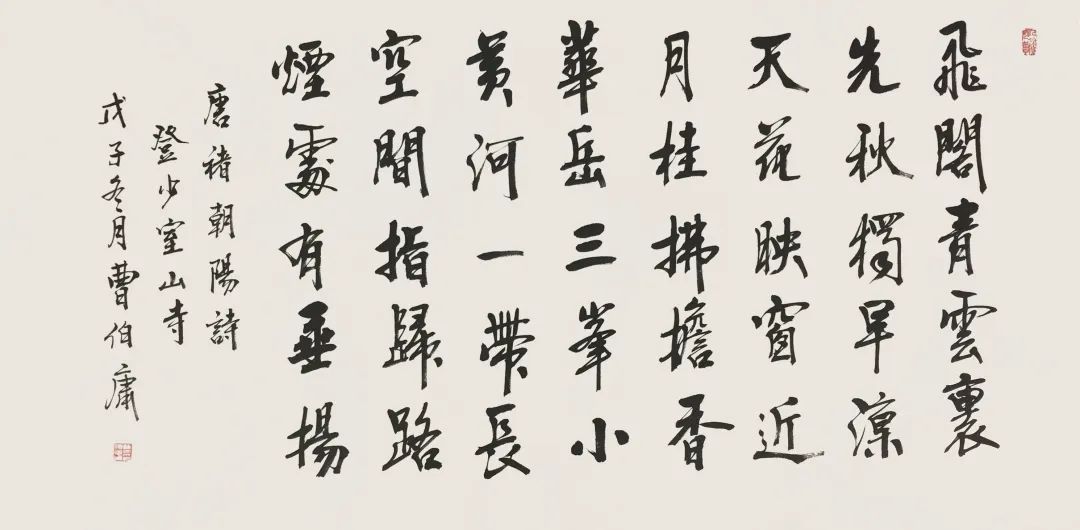 飛閣青雲裏
先秋獨早涼
天花映窗近
月桂拂檐香
華岳三峯小
黄河一帶長
空間指歸路
煙處有垂揚
唐褚朝陽詩
登少室山寺
戊子冬月曹伯庸